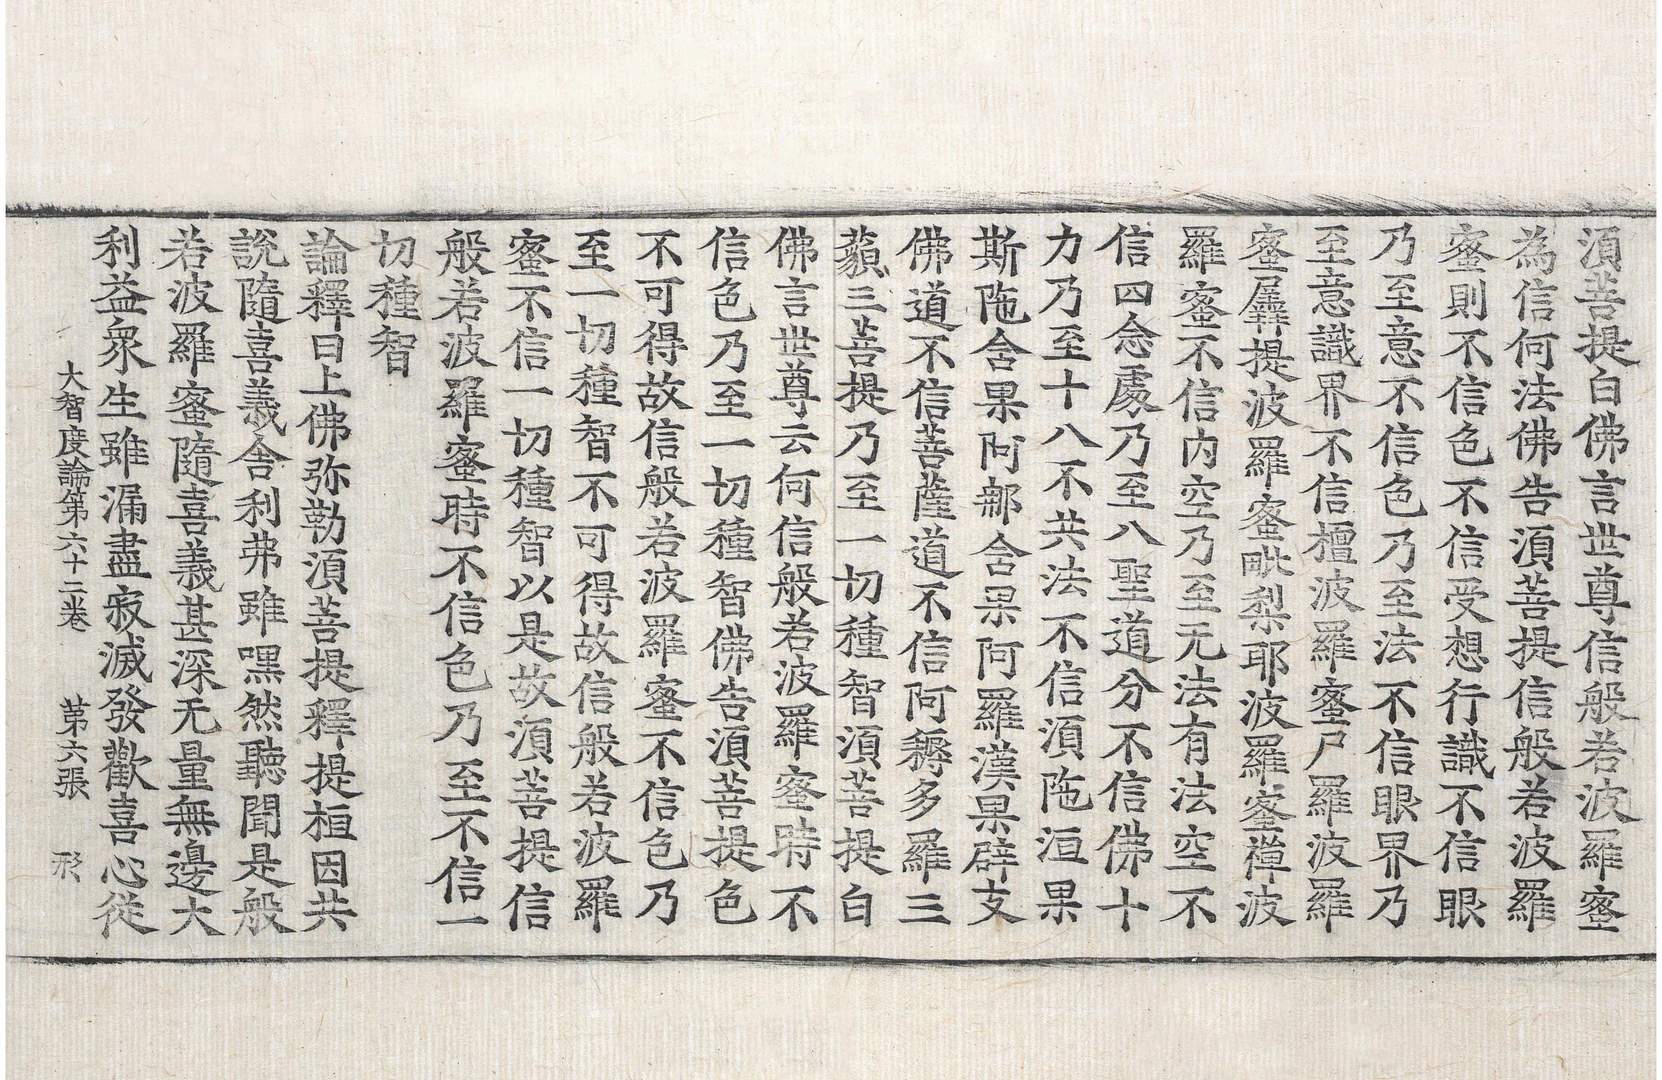 湏菩提白佛言世尊信般若波羅蜜
為信何法佛告湏菩提信般若波羅
蜜則不信色不信受想行識不信眼
乃至意不信色乃至法不信眼界乃
至意識界不信檀波羅蜜尸羅波羅
蜜羼提波羅蜜毗梨耶波羅蜜禪波
羅蜜不信内空乃至无法有法空不
信四念處乃至八聖道分不信佛十
力乃至十八不共法不信湏陁洹果
斯陁含果阿那含果阿羅漢果辟支
佛道不信菩薩道不信阿耨多羅三
藐三菩提乃至一切種智湏菩提白
佛言世尊云何信般若波羅蜜時不
信色乃至一切種智佛告湏菩提色
不可得故信般若波羅蜜不信色乃
至一切種智不可得故信般若波羅
蜜不信一切種智以是故湏菩提信
般若波羅蜜時不信色乃至不信一
切種智
論釋曰上佛弥勒湏菩提釋提桓因共
說隨喜義舍利弗雖嘿然聽聞是般
若波羅蜜隨喜義甚深无量無邊大
利益衆生雖漏盡寂滅發歡喜心從
大智度論第六十二卷　第六張　形